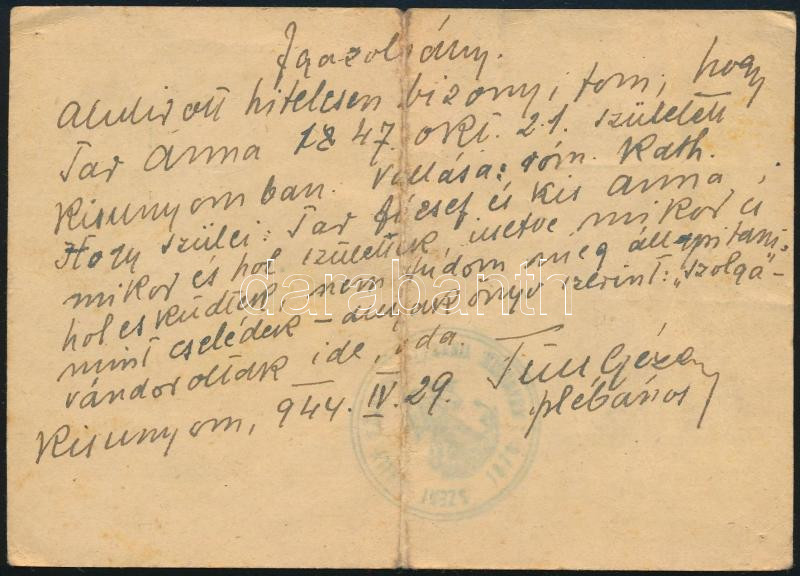 Igazolvány.
Alulírott hitelesen bizonyitom, hogy
Tar Anna 1847. okt. 21. született
Kisunyomban. Vallása: róm. Kath.
Hogy szülei: Tar József és Kis Anna,
mikor és hol születtek, illetve mikor és
hol esküdtek, nem tudom meg állapitani:
mint cselédek – anyakönyv szerint: „szolga"-
vándoroltak ide, oda.
Géza
plébános
Kisunyom, 944. IV. 29.
darabanth